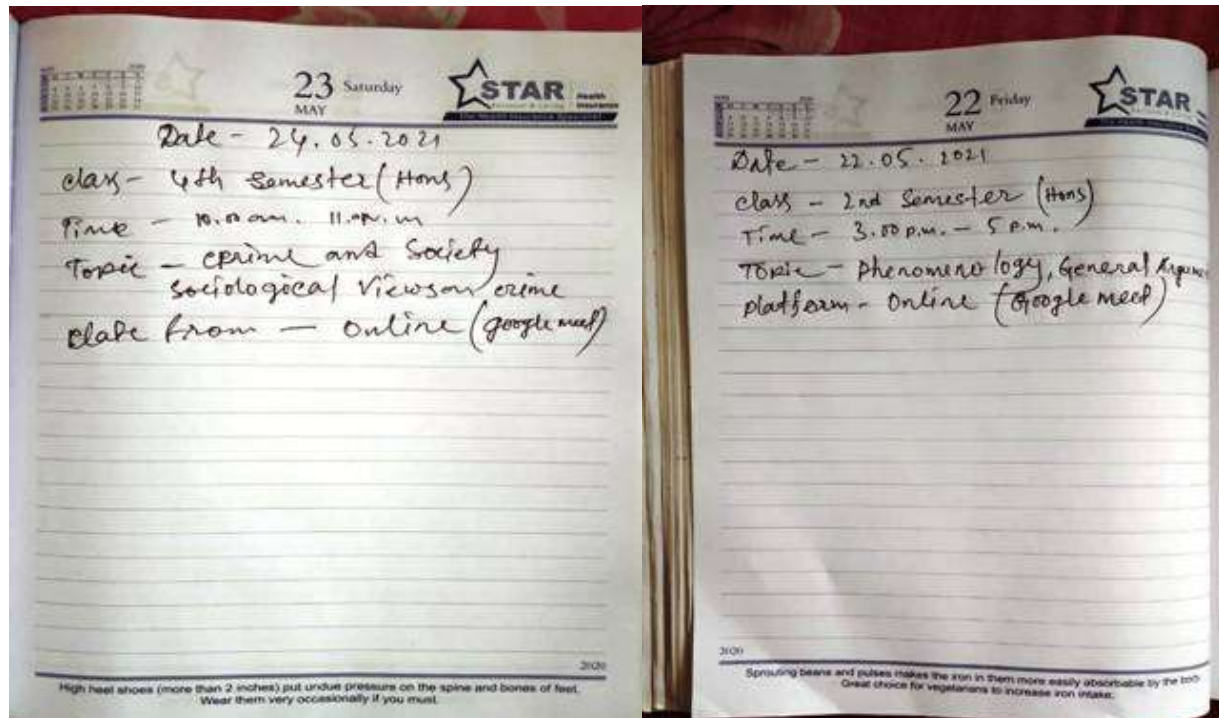 23 Saturday
MAY
STAR Health Insurance
Personal & Caring
The Health Insurance Specialist
Date - 24.05.2021
class - 4th Semester (Hons)
Time - 10.00 am. 11.00 a.m
Topic - cprime and Society
sociological Views on crime
Plate from - Online (google meet)
2020
High heel shoes (more than 2 inches) put undue pressure on the spine and bones of feet.
Wear them very occasionally if you must.
22 Friday
MAY
STAR
Date - 22.05.2021
class - 2nd Semester (Hons)
Time - 3.00 p.m. - 5 p.m.
Topic - Phenomenology, General
platform - Online (Google meet)
2020
Sprouting beans and pulses makes the iron in them more easily absorbable by the body
Great choice for vegetarians to increase iron intake.